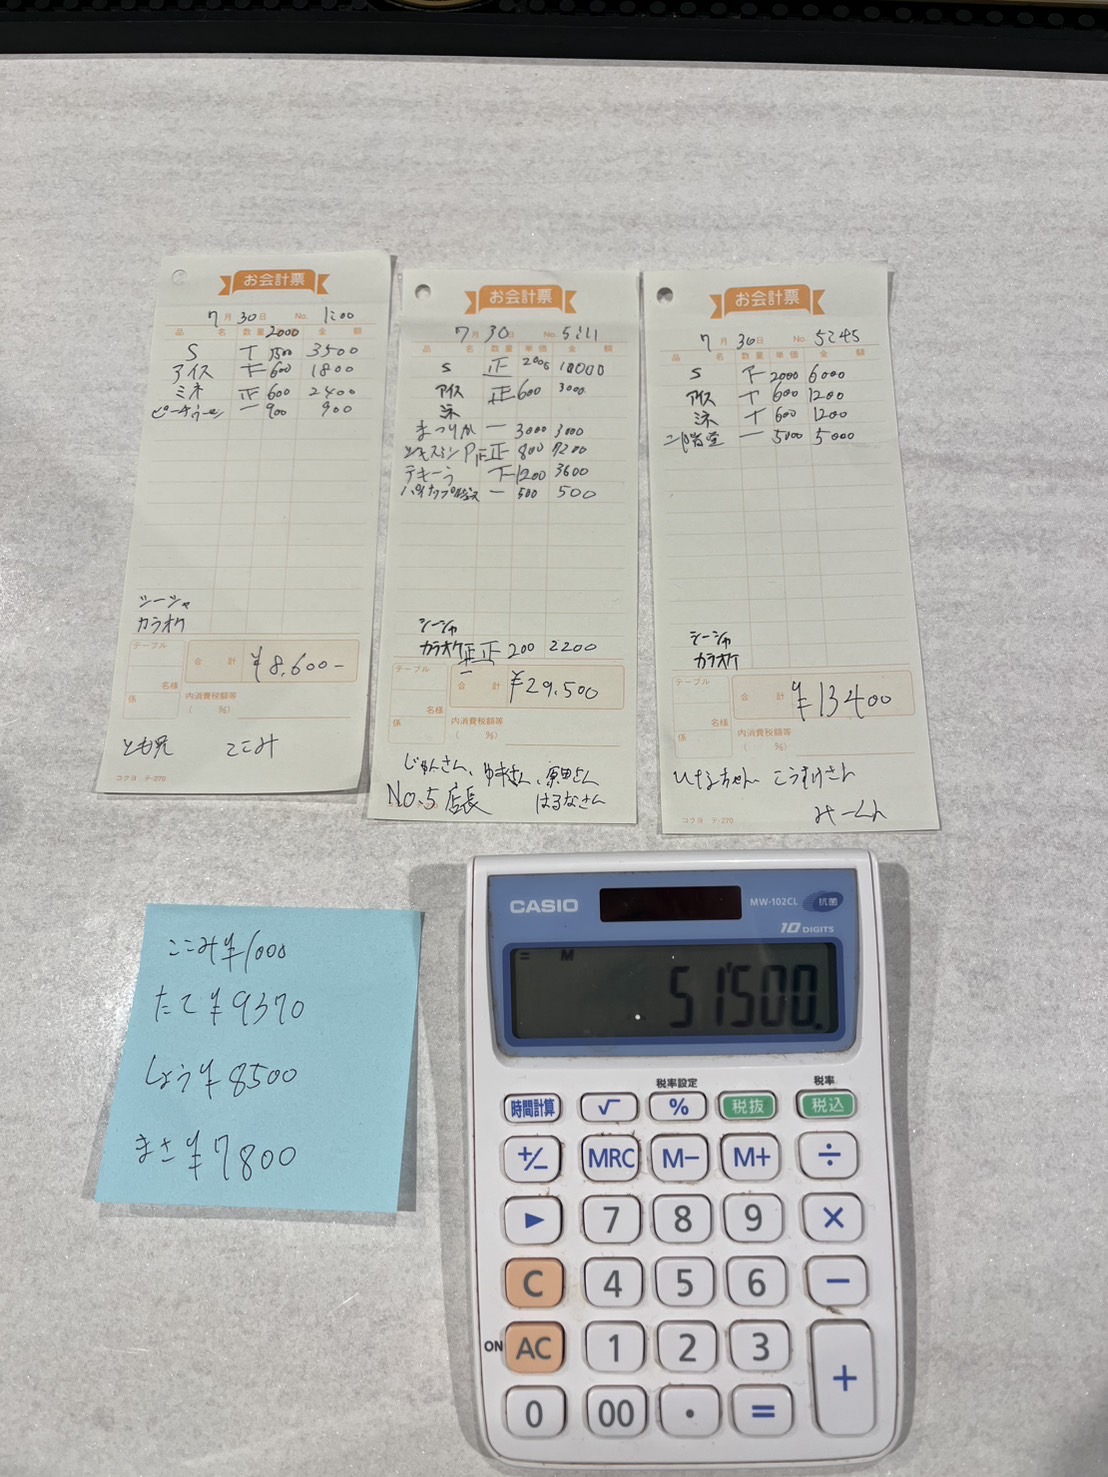 お会計票
7月30日 No. 1:00
品名 数量 2000 金額
S T 1500 3500
アイス 下 600 1800
ミネ 正 600 2400
ピーチウーロン 一 900 900
シーシャ
カラオケ
テーブル
合計 ¥8,600-
名様
係 内消費税額等
( %)
とも兄 ここみ
コクヨ テ-270
お会計票
7月30日 No. 5:11
品名 数量 単価 金額
S 正 2000 10000
アイス 正 600 3000
ミネ
まつりか 一 3000 3000
ジャスミンP 正正 800 7200
テキーラ 下 1200 3600
パイナップル 一 500 500
シーシャ
カラオケ 正正一 200 2200
テーブル
合計 ¥29,500
名様
係 内消費税額等
( %)
じゅんさん、ゆきさん、原田さん
No.5 店長 はるなさん
お会計票
7月30日 No. 5:45
品名 数量 単価 金額
S 下 2000 6000
アイス T 600 1200
ミネ T 600 1200
二階堂 一 5000 5000
シーシャ
カラオケ
テーブル
合計 ¥13400
名様
係 内消費税額等
( %)
ひなちゃん こうすけさん
みーくん
コクヨ テ-270
ここみ ¥1000
たて ¥9370
しょう ¥8500
まさ ¥7800
CASIO MW-102CL 抗菌
10 DIGITS
= M
51'500.
税率設定 税率
時間計算 √ % 税抜 税込
+/- MRC M- M+ ÷
▶ 7 8 9 ×
C 4 5 6 -
ON AC 1 2 3 +
0 00 • =